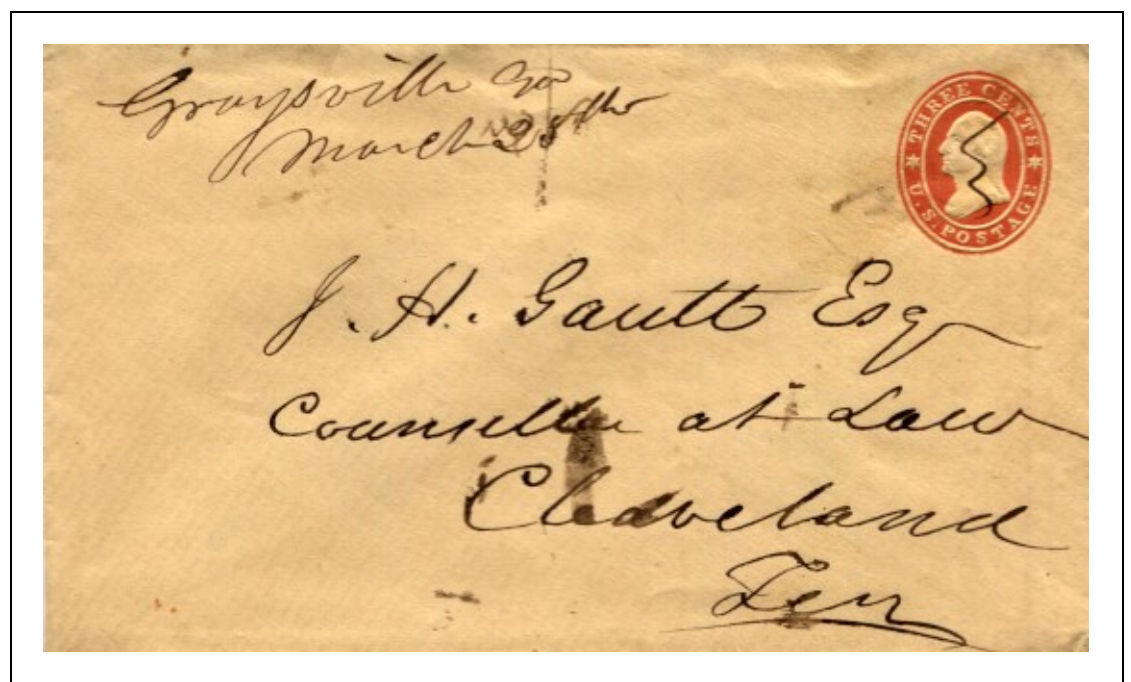 Graysville Ga
March 28th
THREE CENTS
U.S. POSTAGE
J. H. Gautt Esq
Counsellor at Law
Cleaveland
Ten